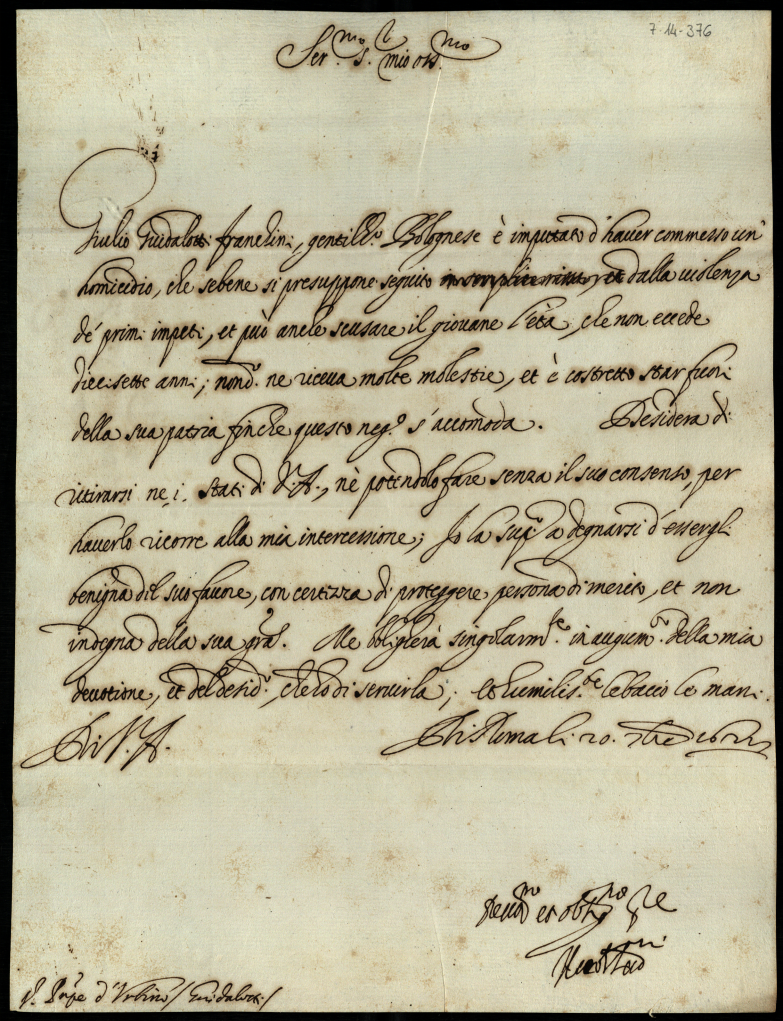 7-14-376
Ser.mo S.r mio oss.mo
Giulio Guidalotti Franchini, gentilh.o Bolognese è imputato d'hauer commesso un'
homicidio, che sebene si presuppone seguito dalla uiolenza
de' primi impeti, et può anche scusare il giouane l'età, che non eccede
diecisette anni, nond.o ne riceua molte molestie, et è costretto star fuori
della sua patria finche questo neg.o s'accomoda. Desidera di
ritirarsi ne i stati di V.A., nè potendolo fare senza il suo consenso, per
hauerlo ricorre alla mia intercessione; Io la sup.co a degnarsi d'essergli
benigna del suo fauore, con certezza di proteggere persona di merito, et non
indegna della sua gra.a. Me obligherà singolarm.te in augum.o della mia
deuotione, et del desid.o, che ho di seruirla; et humiliss.te le bacio le mani.
Di V.A. Di Roma li 20.
Deuo.mo et obl.mo
Duca d'Vrbino / Guidalotti /